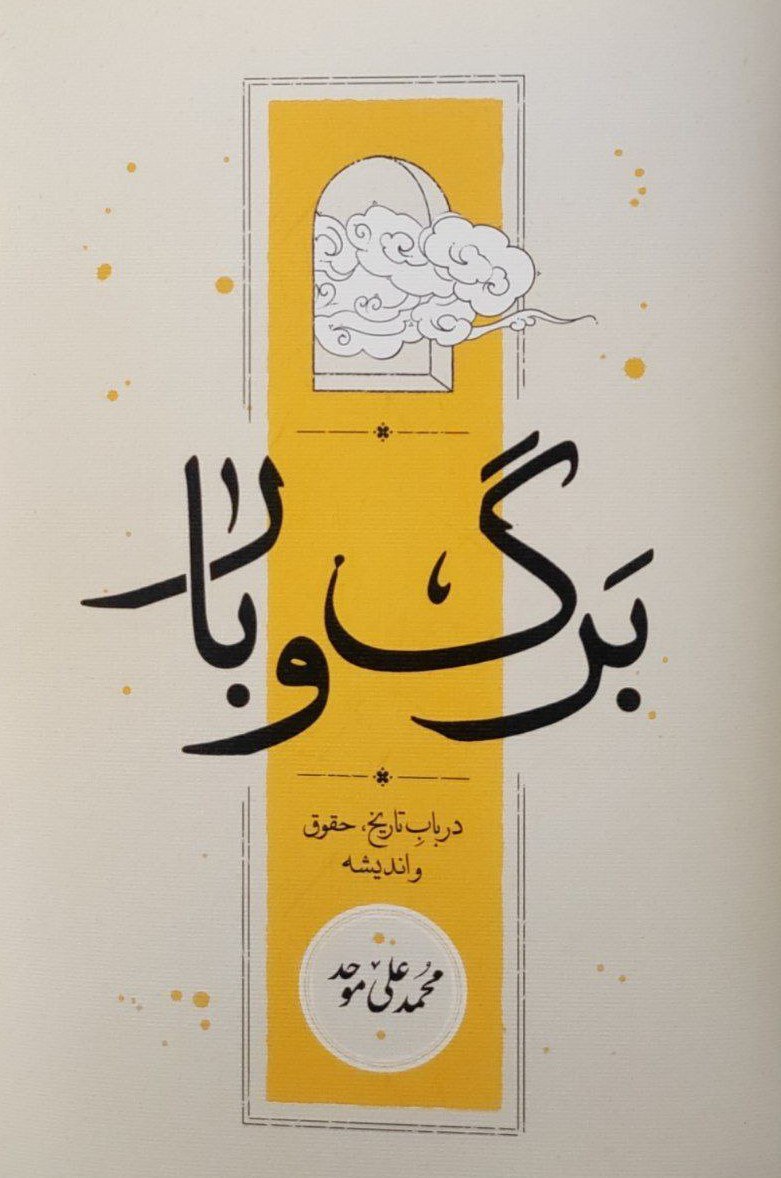 بَرگ و بار
در بابِ تاریخ، حقوق
و اندیشه
محمدعلی موحد